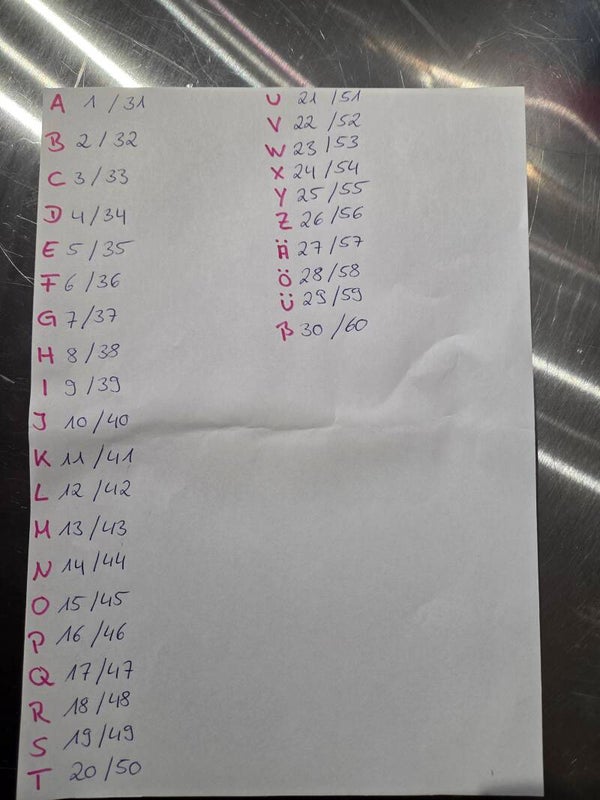 A 1 / 31
B 2 / 32
C 3 / 33
D 4 / 34
E 5 / 35
F 6 / 36
G 7 / 37
H 8 / 38
I 9 / 39
J 10 / 40
K 11 / 41
L 12 / 42
M 13 / 43
N 14 / 44
O 15 / 45
P 16 / 46
Q 17 / 47
R 18 / 48
S 19 / 49
T 20 / 50
U 21 / 51
V 22 / 52
W 23 / 53
X 24 / 54
Y 25 / 55
Z 26 / 56
Ä 27 / 57
Ö 28 / 58
Ü 29 / 59
ß 30 / 60